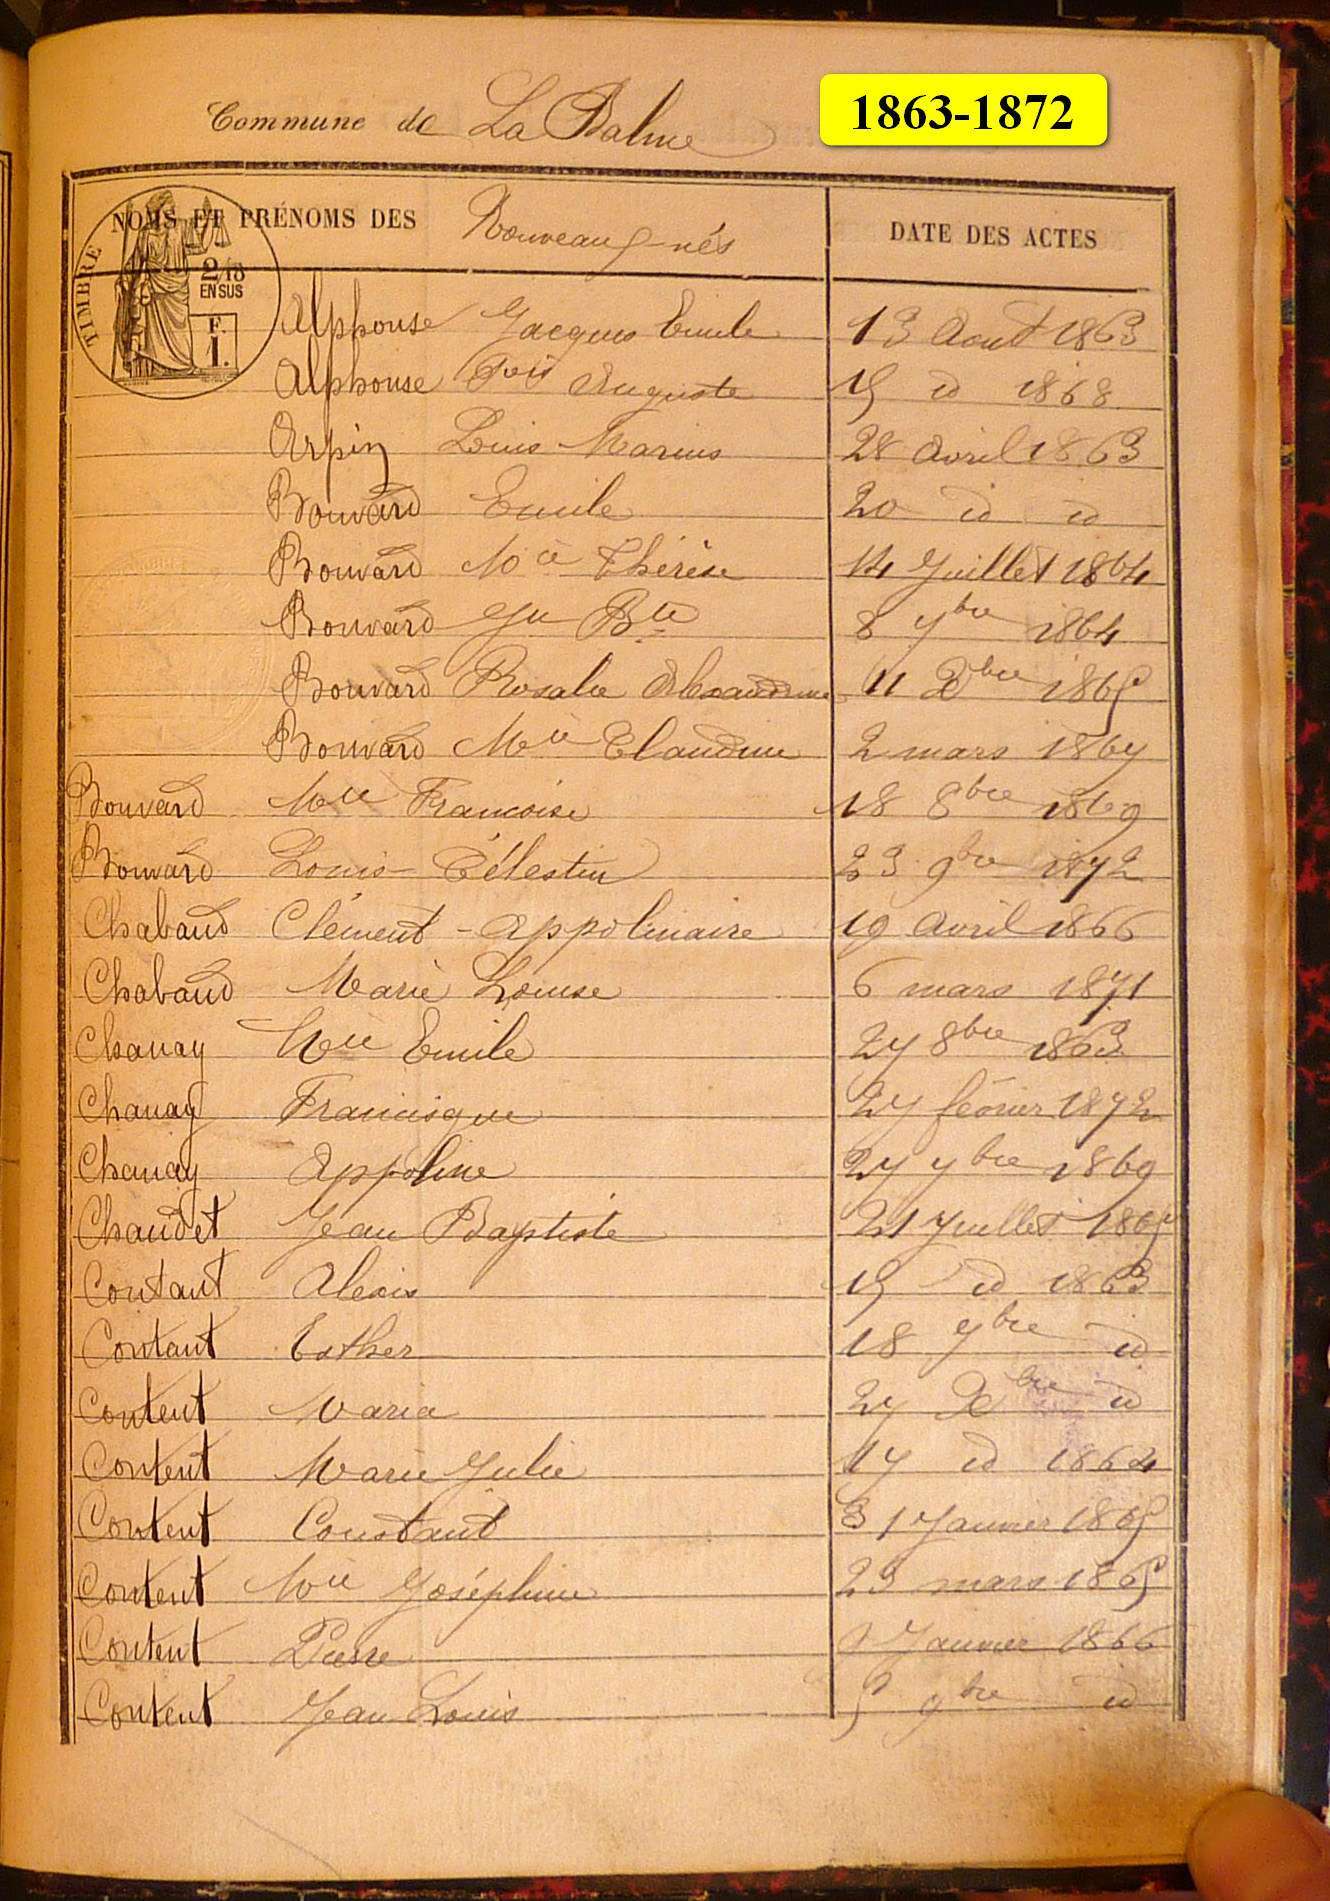 Commune de La Balme
1863-1872
NOMS ET PRÉNOMS DES Nouveaux-nés DATE DES ACTES
TIMBRE
2/10
EN SUS
F.
1.
Alphonse Jacques Emile 13 Aout 1863
Alphonse Fois Auguste 15 id 1868
Arpin Louis Marius 28 Avril 1863
Bouvard Emile 20 id id
Bouvard Mie Thérèse 14 Juillet 1864
Bouvard Jn Bte 8 7bre 1864
Bouvard Rosalie Alexandrine 11 Xbre 1865
Bouvard Mie Claudine 2 mars 1867
Bouvard Mie Francoise 18 8bre 1869
Bouvard Louis-Célestin 23 9bre 1872
Chabaud Clément-Appolinaire 19 Avril 1866
Chabaud Marie Louise 6 mars 1871
Chanay Mie Emile 27 8bre 1863
Chanay Francisque 27 février 1872
Chanay Appoline 27 7bre 1869
Chaudet Jean Baptiste 21 Juillet 1865
Contant Alexis 15 id 1863
Contant Esther 18 9bre id
Content Maria 27 Xbre id
Content Marie Julie 17 id 1864
Content Constant 31 Janvier 1865
Content Mie Joséphine 23 mars 1865
Content Pierre Janvier 1866
Content Jean Louis 5 9bre id